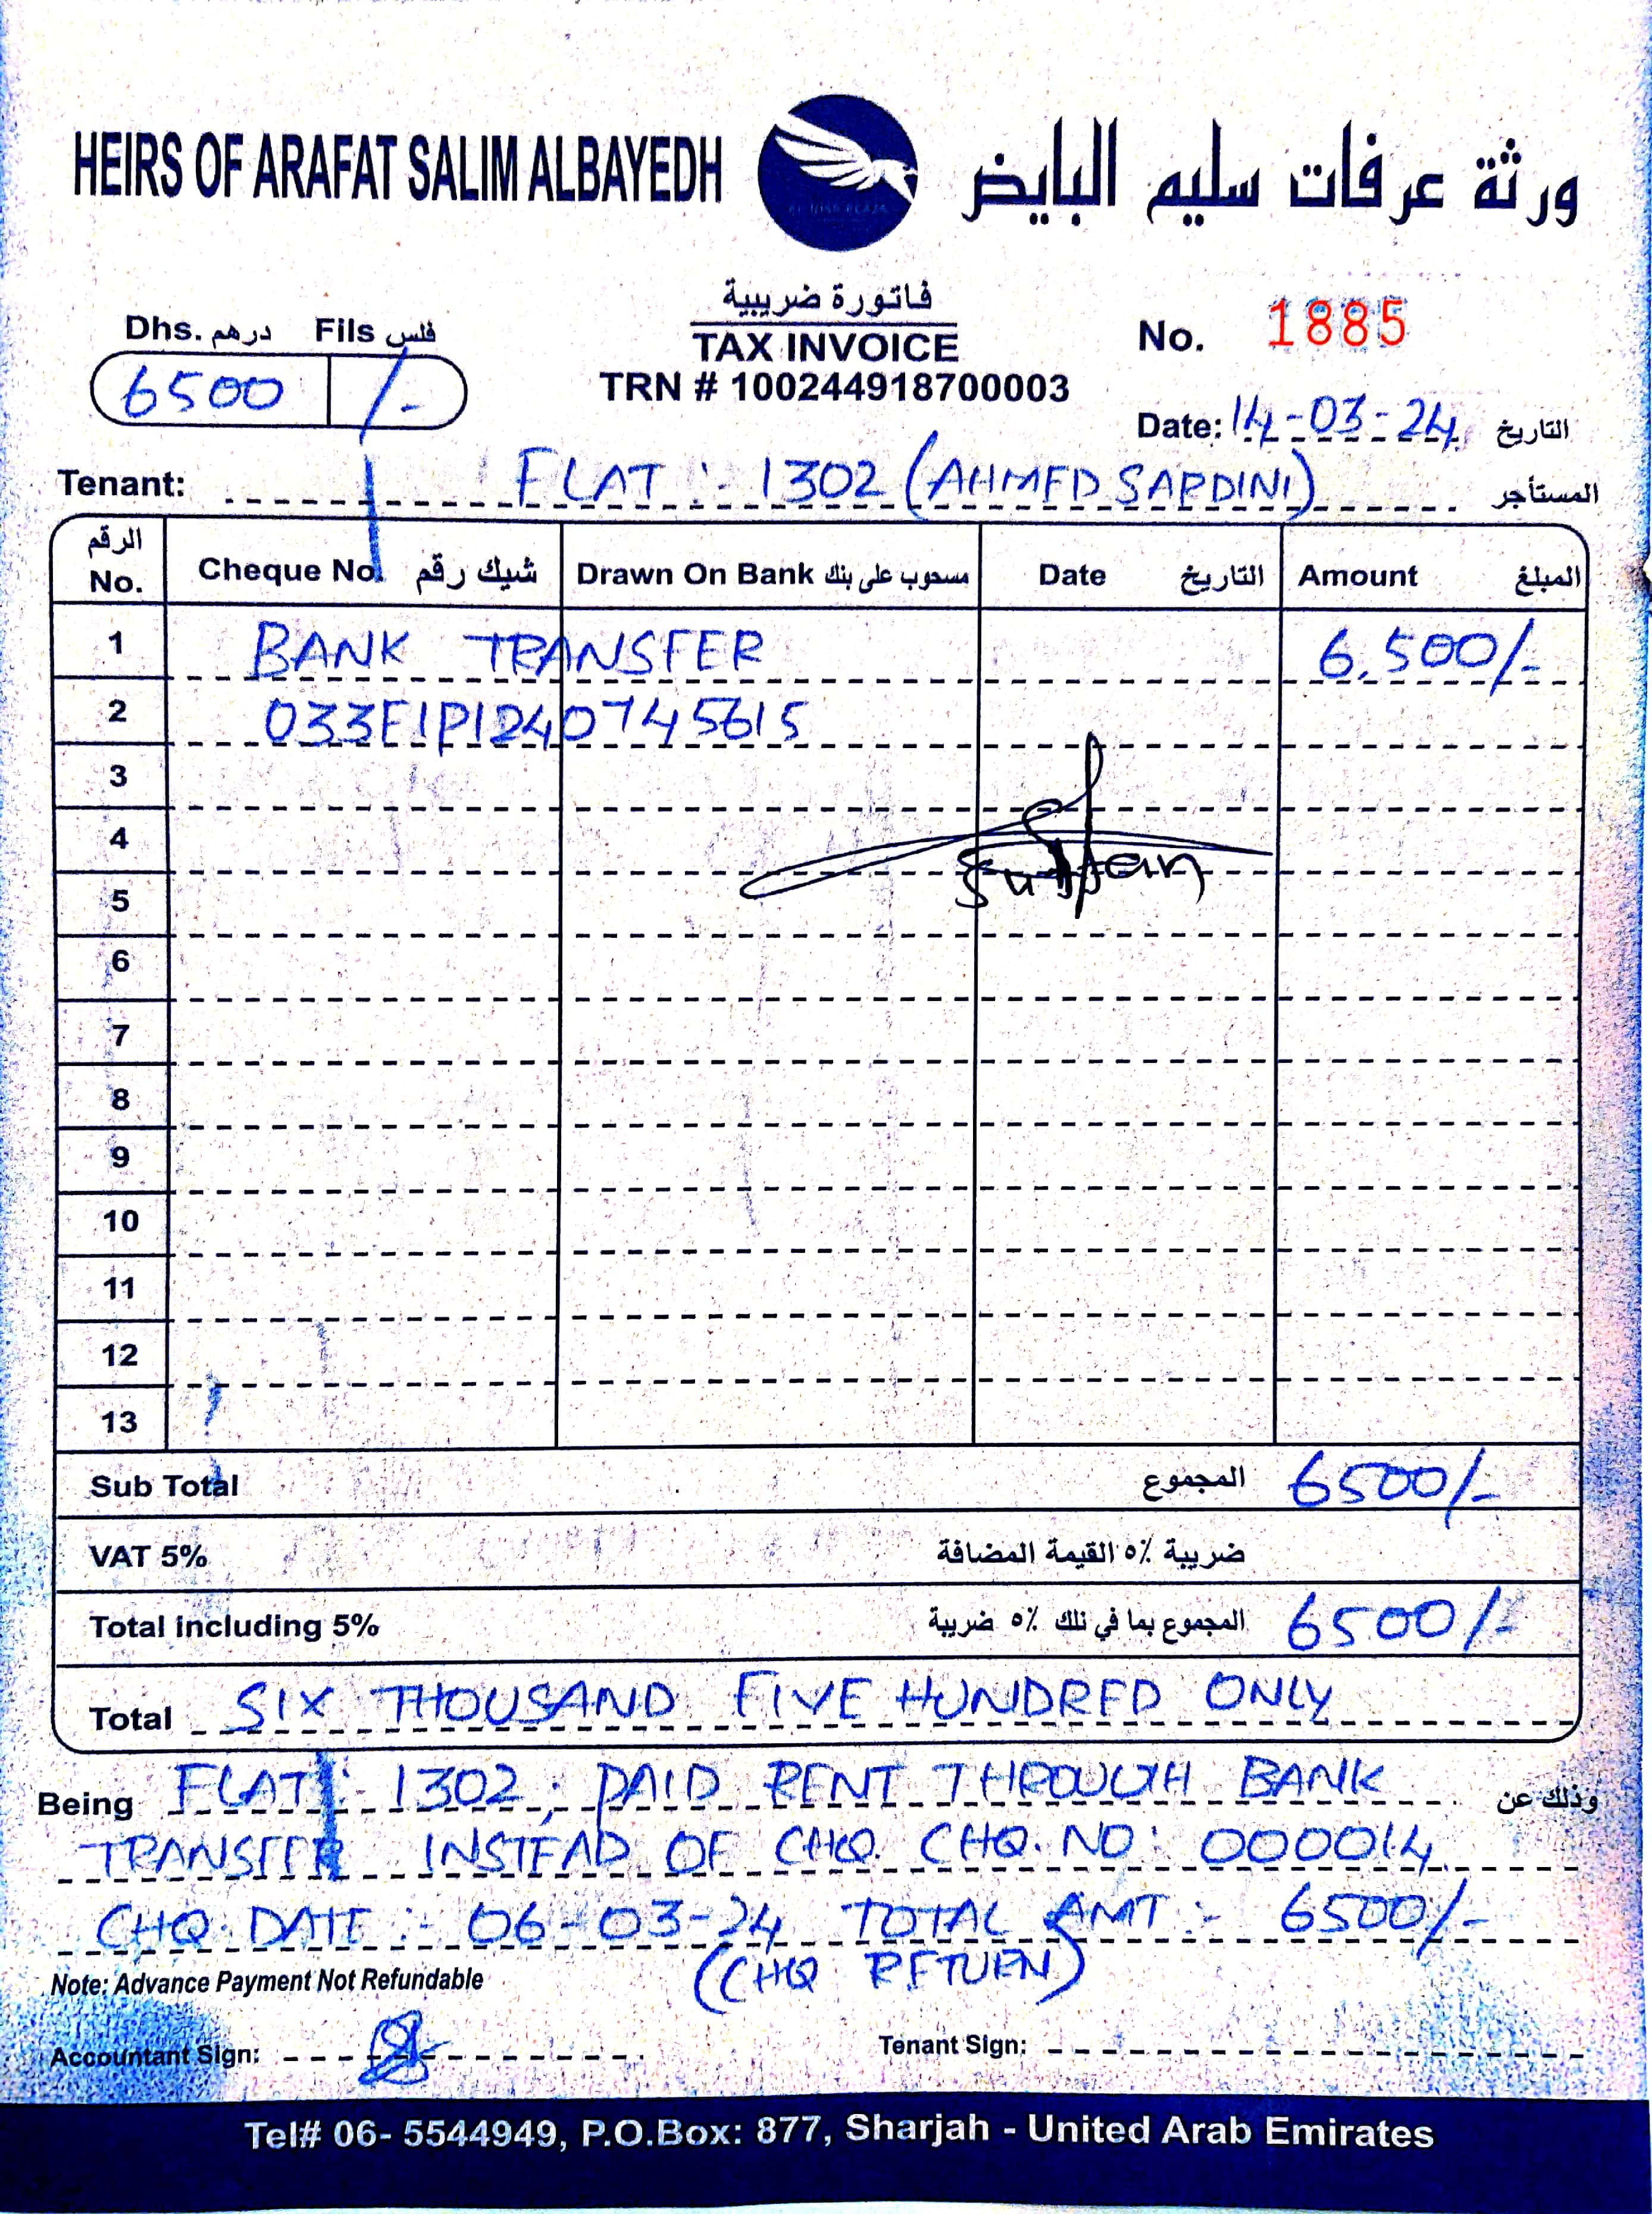 HEIRS OF ARAFAT SALIM ALBAYEDH ورثة عرفات سليم البايض
فاتورة ضريبية
TAX INVOICE
TRN # 100244918700003
Dhs. درهم Fils فلس
6500 /-
No. 1885
Date: 14-03-24 التاريخ
Tenant: FLAT :- 1302 (AHMED SARDINI) المستأجر
الرقم No. Cheque No. شيك رقم Drawn On Bank مسحوب على بنك Date التاريخ Amount المبلغ
1 BANK TRANSFER 6,500/-
2 033FIPI240745615
3
4
Suffan
5
6
7
8
9
10
11
12
13
Sub Total المجموع 6500/-
VAT 5% ضريبة ٥٪ القيمة المضافة
Total including 5% المجموع بما في ذلك ٥٪ ضريبة 6500/-
Total SIX THOUSAND FIVE HUNDRED ONLY
Being FLAT: 1302; PAID RENT THROUGH BANK وذلك عن
TRANSFER INSTEAD OF CHQ. CHQ. NO: 000014
CHQ. DATE :- 06-03-24 TOTAL AMT :- 6500/-
(CHQ RETURN)
Note: Advance Payment Not Refundable
Accountant Sign: Tenant Sign:
Tel# 06- 5544949, P.O.Box: 877, Sharjah - United Arab Emirates